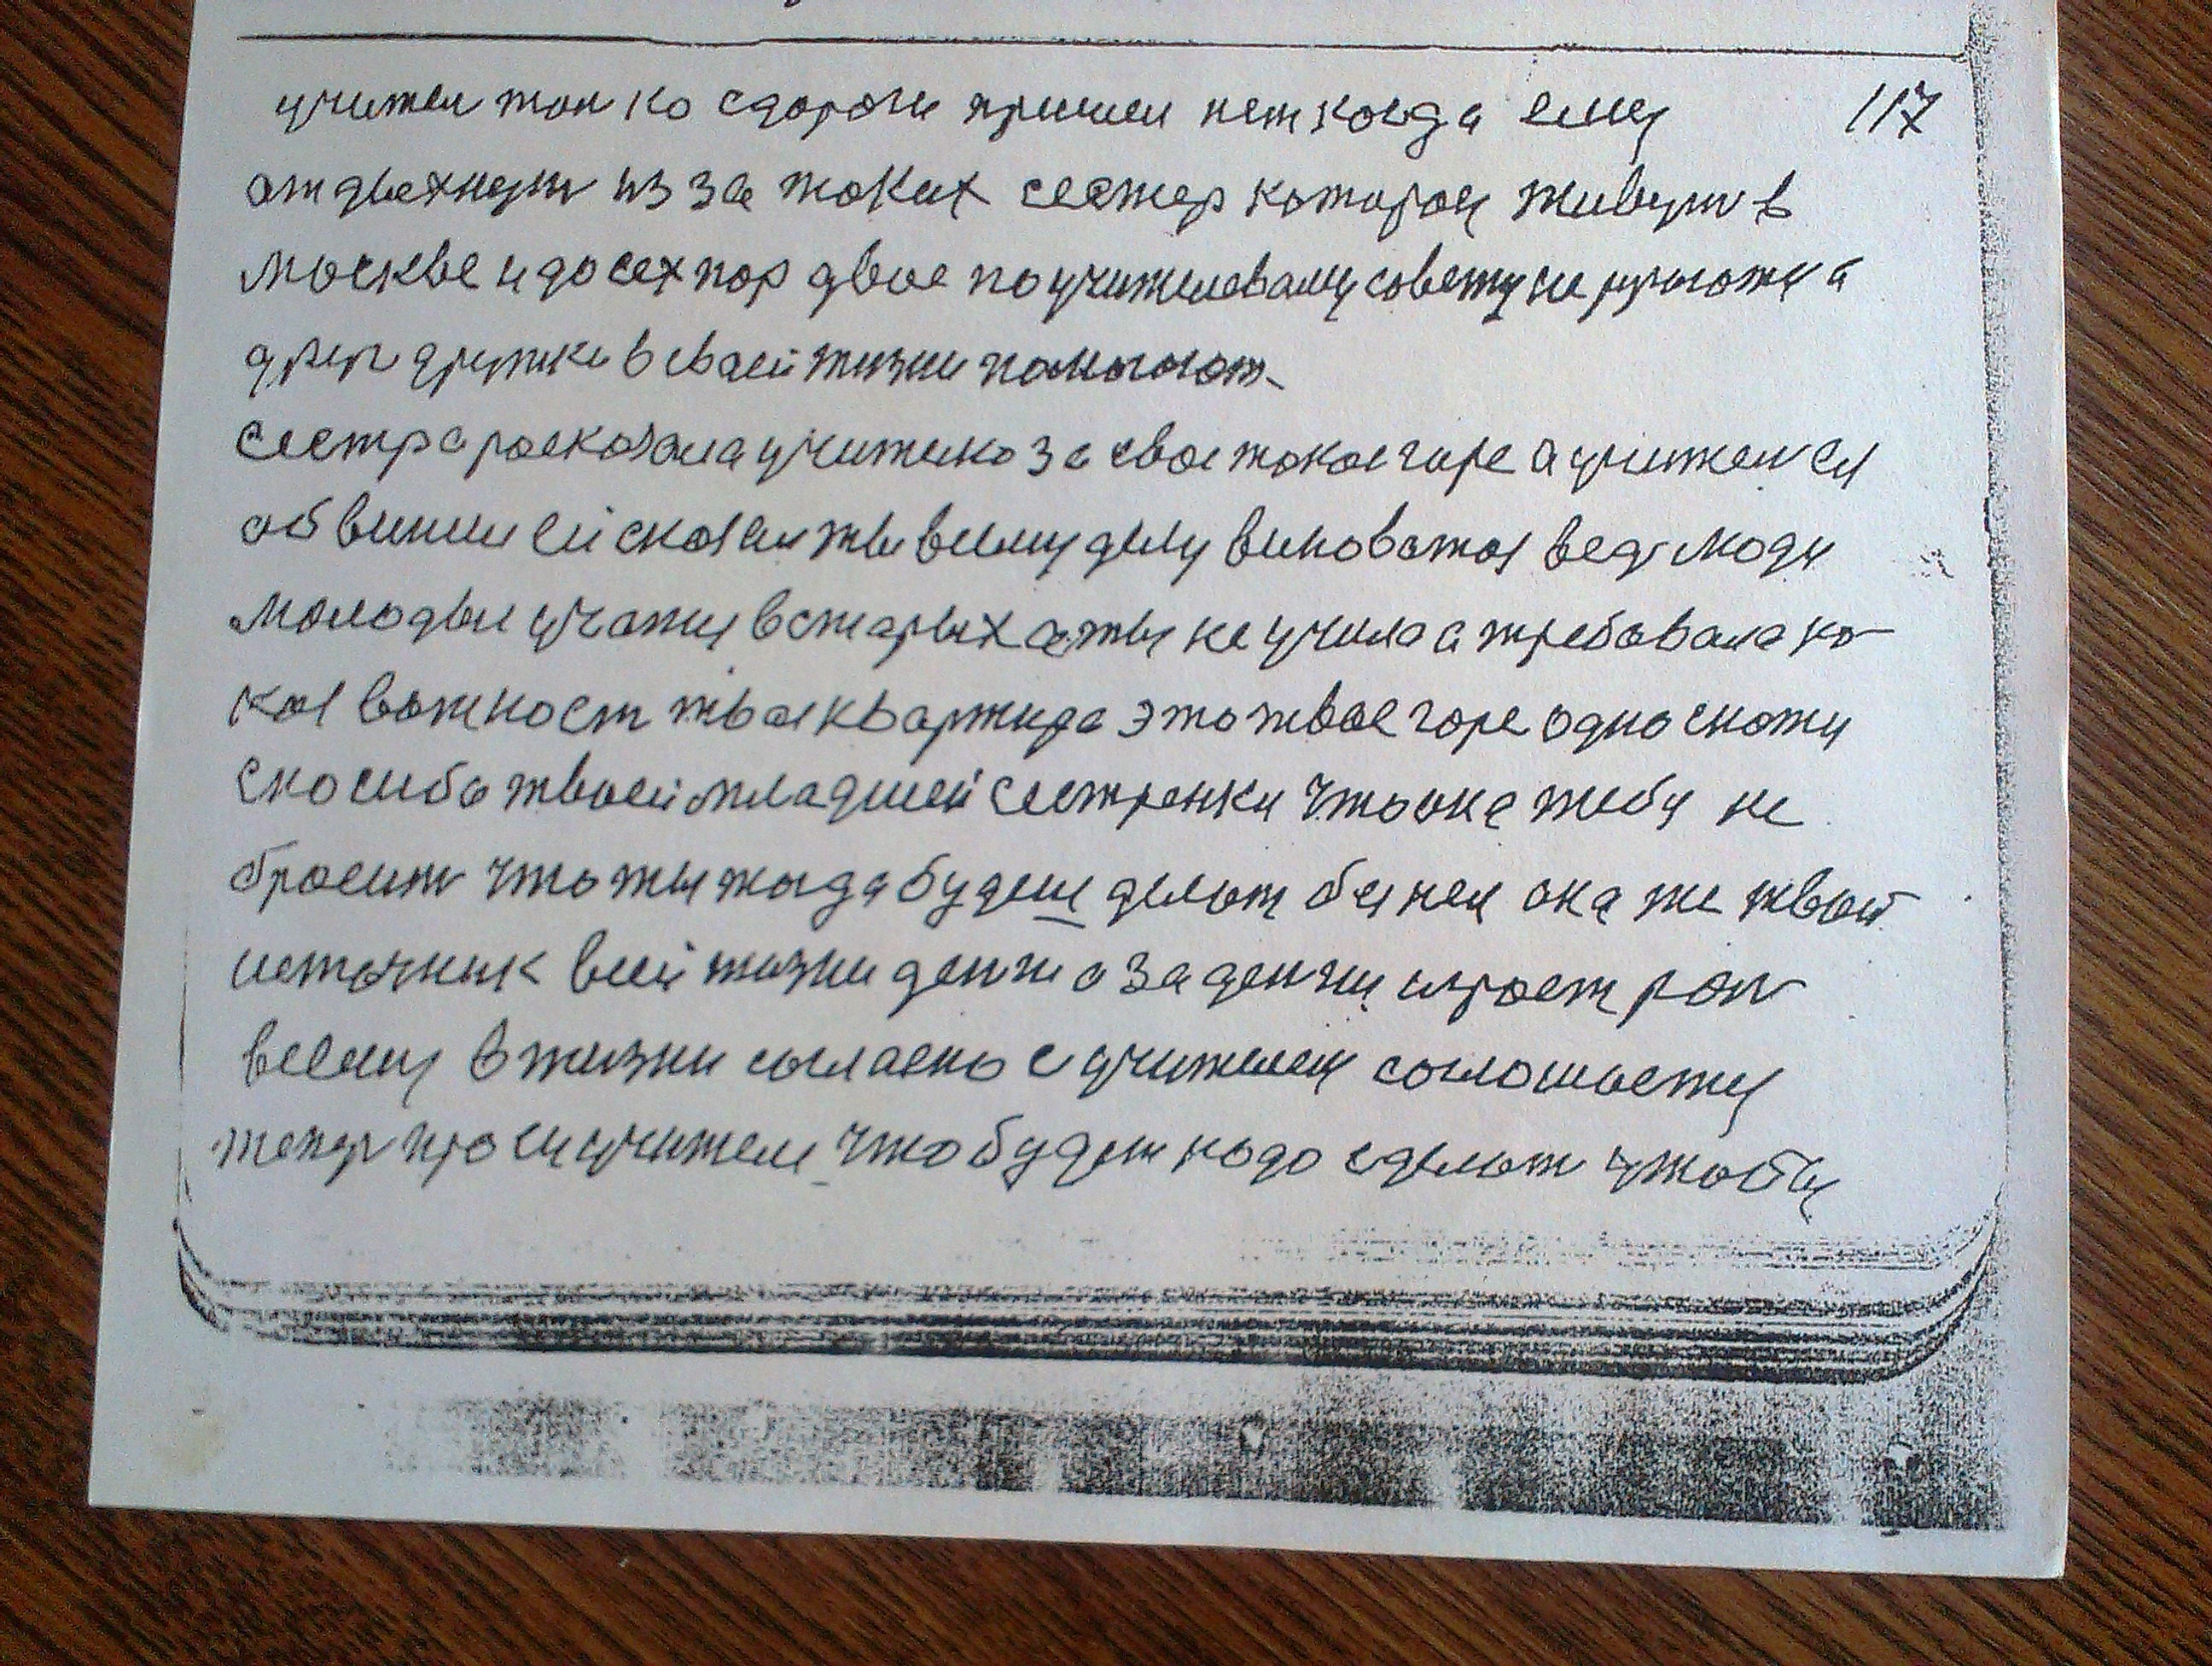 учител толко сдароги пришел неткогда ему 117
отдыхнут из за таких сестер каторои живут в
москве и до сех пор двое по учителеваму совету не ругаютца
друг дружки в своей жизни помогают.
Сестра росказала учителю за свое такое горе а учител ея
обвинил ей сказал ты всему делу виноватоя вед люди
молодыи учатца в старых а ты не учила а требовала ка-
кая важност твоя квартира это твое горе одно скажи
спосиба твоей младшей сестренки что она тебя не
бросит что ты тогда будеш делат без нея она же твой
источник всей жизни денги а за денги играет рол
всему в жизни сагласно с учителем соглошается
тепер проси учителя что будет надо сделат чтобы